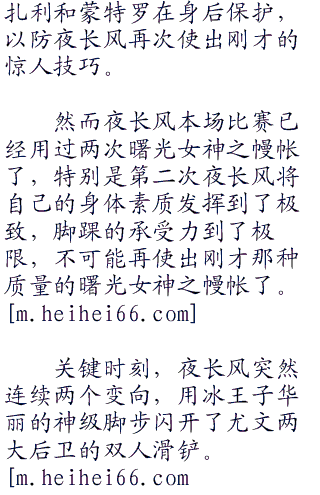 扎利和蒙特罗在身后保护，
以防夜长风再次使出刚才的
惊人技巧。
然而夜长风本场比赛已
经用过两次曙光女神之幔帐
了，特别是第二次夜长风将
自己的身体素质发挥到了极
致，脚踝的承受力到了极
限，不可能再使出刚才那种
质量的曙光女神之幔帐了。
[m.heihei66.com]
关键时刻，夜长风突然
连续两个变向，用冰王子华
丽的神级脚步闪开了尤文两
大后卫的双人滑铲。
[m.heihei66.com